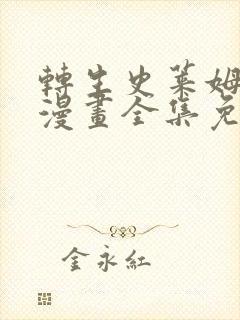 轉生史萊姆
漫畫全集免
金永紅